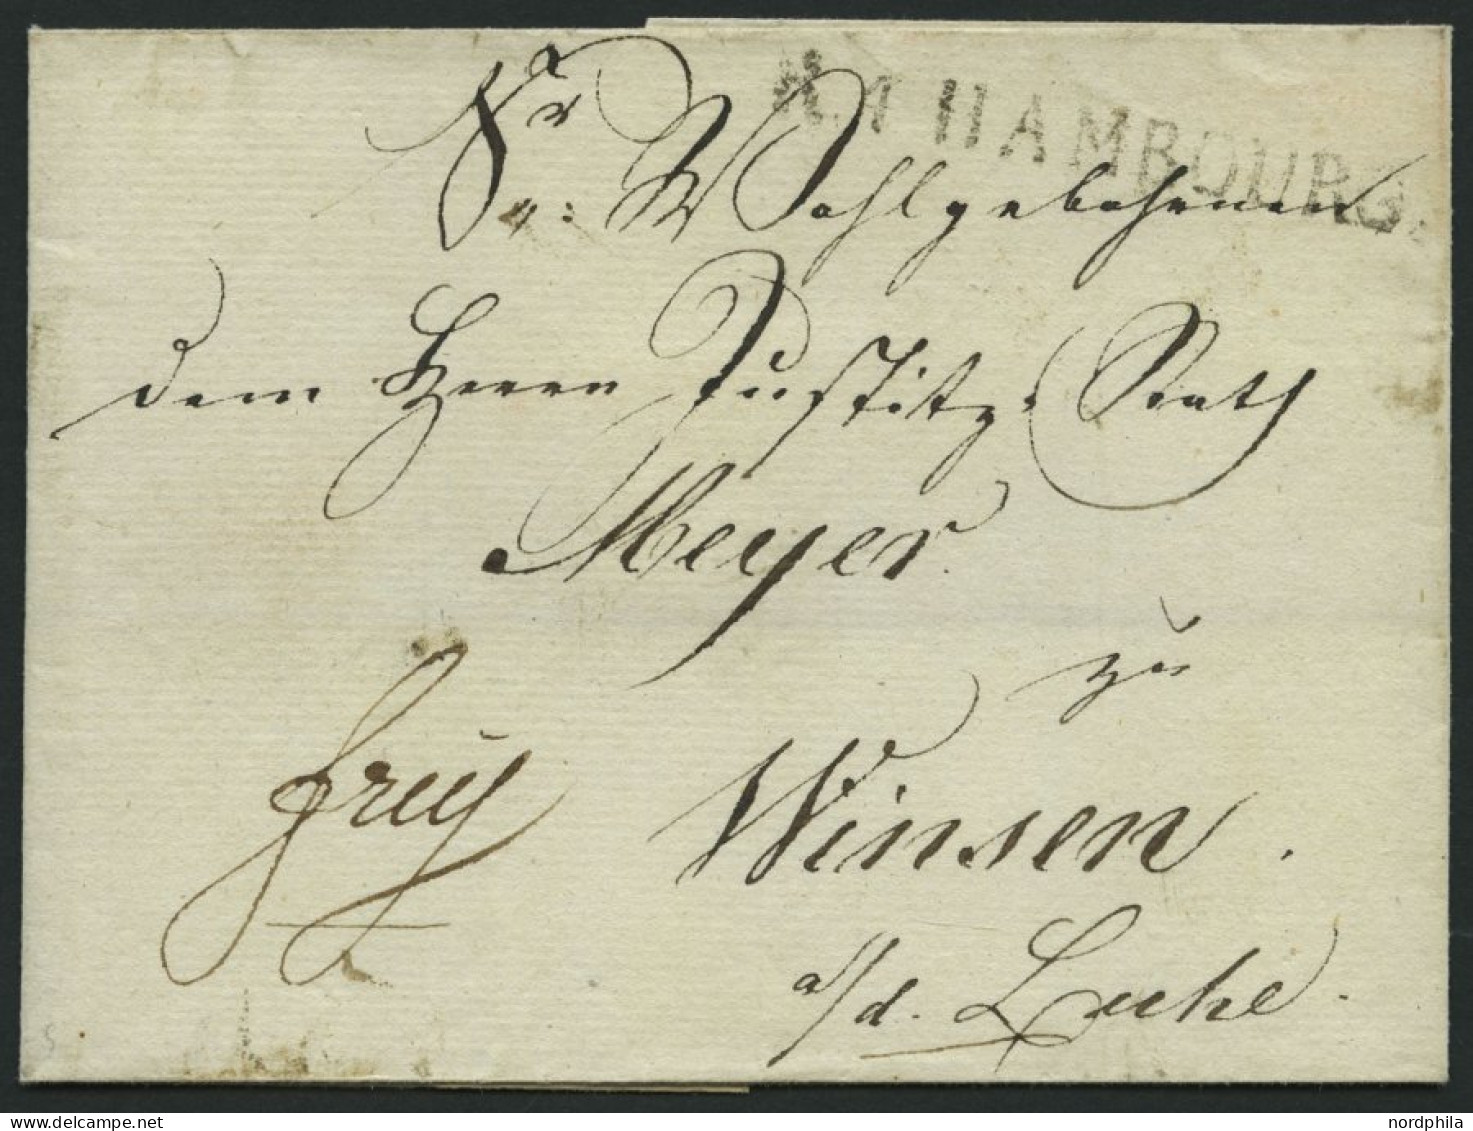 R. 4 HAMBOURG.
Sr: Wohlgebohrnen
dem Herrn Justitz-Rath
Meyer
zu
frey
Winsen.
a/d. Luhe.
nordphila